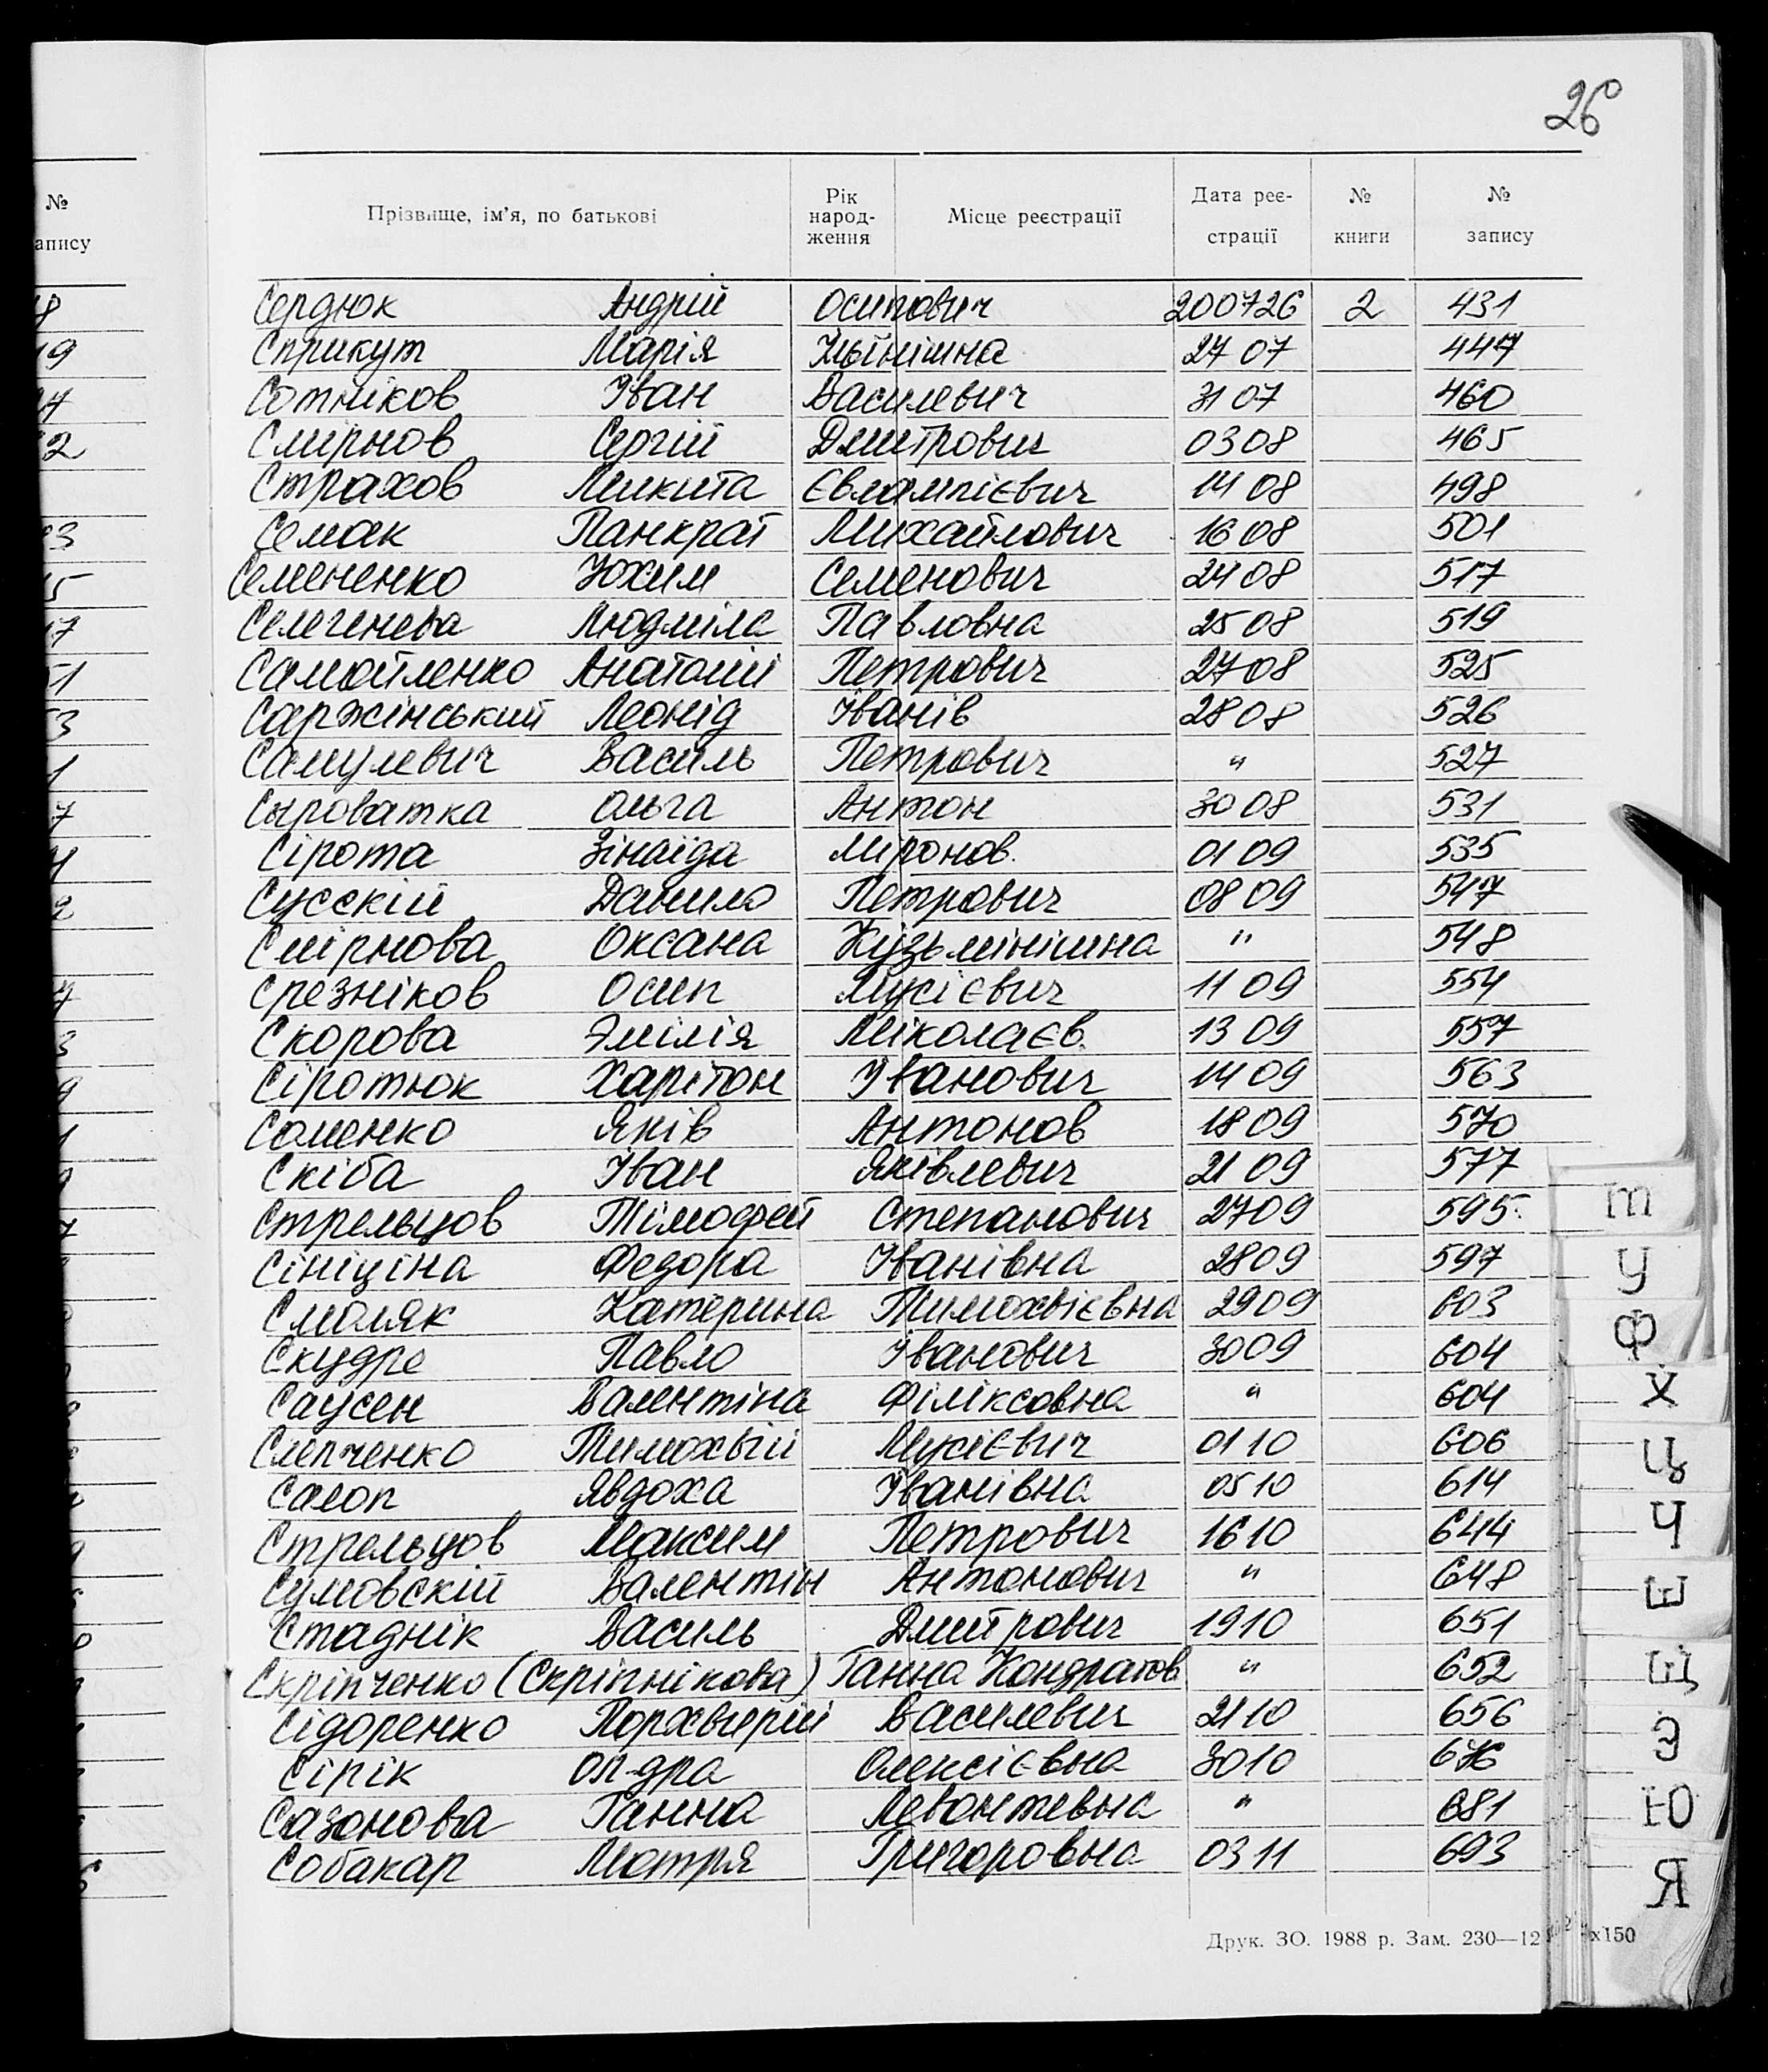 26
№
апису
Прізвище, ім'я, по батькові Рік народ-ження Місце реєстрації Дата реє-страції № книги № запису
Сердюк Андрій Осипович 200726 2 431
Сприкут Марія Ільїнішна 27 07 447
Сотніков Іван Василевич 31 07 460
Смірнов Сергій Дмитрович 03 08 465
Страхов Микита Євлампієвич 14 08 498
Семак Панкрат Михайлович 16 08 501
Семененко Юхим Семенович 24 08 517
Селегенева Людміла Павловна 25 08 519
Самойленко Анатолій Петрович 27 08 525
Саржінський Леонід Іванів 28 08 526
Самулевич Василь Петрович " 527
Сыроватка Ольга Антон 30 08 531
Сірота Зінаїда Миронов. 01 09 535
Сусскій Данило Петрович 08 09 547
Смірнова Оксана Кузьмінішна " 548
Срезніков Осип Мусієвич 11 09 554
Скорова Эмілія Міколаєв. 13 09 557
Сіротюк Харітон Іванович 14 09 563
Соменко Яків Антонов 18 09 570
Скіба Іван Яківлевич 21 09 577
Стрельцов Тімофей Степанович 27 09 595
Сініціна Федора Іванівна 28 09 597
Смоляк Катерина Тимохвієвна 29 09 603
Скудре Павло Іванович 30 09 604
Саусен Валентіна Філіксовна " 604
Слепченко Тимохвій Мусієвич 01 10 606
Салоп Явдоха Іванівна 05 10 614
Стрельцов Максим Петрович 16 10 644
Сумовскій Валентін Антонович " 648
Стаднік Василь Дмитрович 19 10 651
Скріпченко (Скріпнікова) Ганна Кондратов " 652
Сідоренко Порхвирій Василевич 21 10 656
Сірік Ол-дра Олексієвна 30 10 676
Сазонова Ганна Левонтевна " 681
Собакар Мотря Григоровна 03 11 693
Друк. ЗО. 1988 р. Зам. 230—12 х150
Т
У
Ф
Х
Ц
Ч
Ш
Щ
Э
Ю
Я